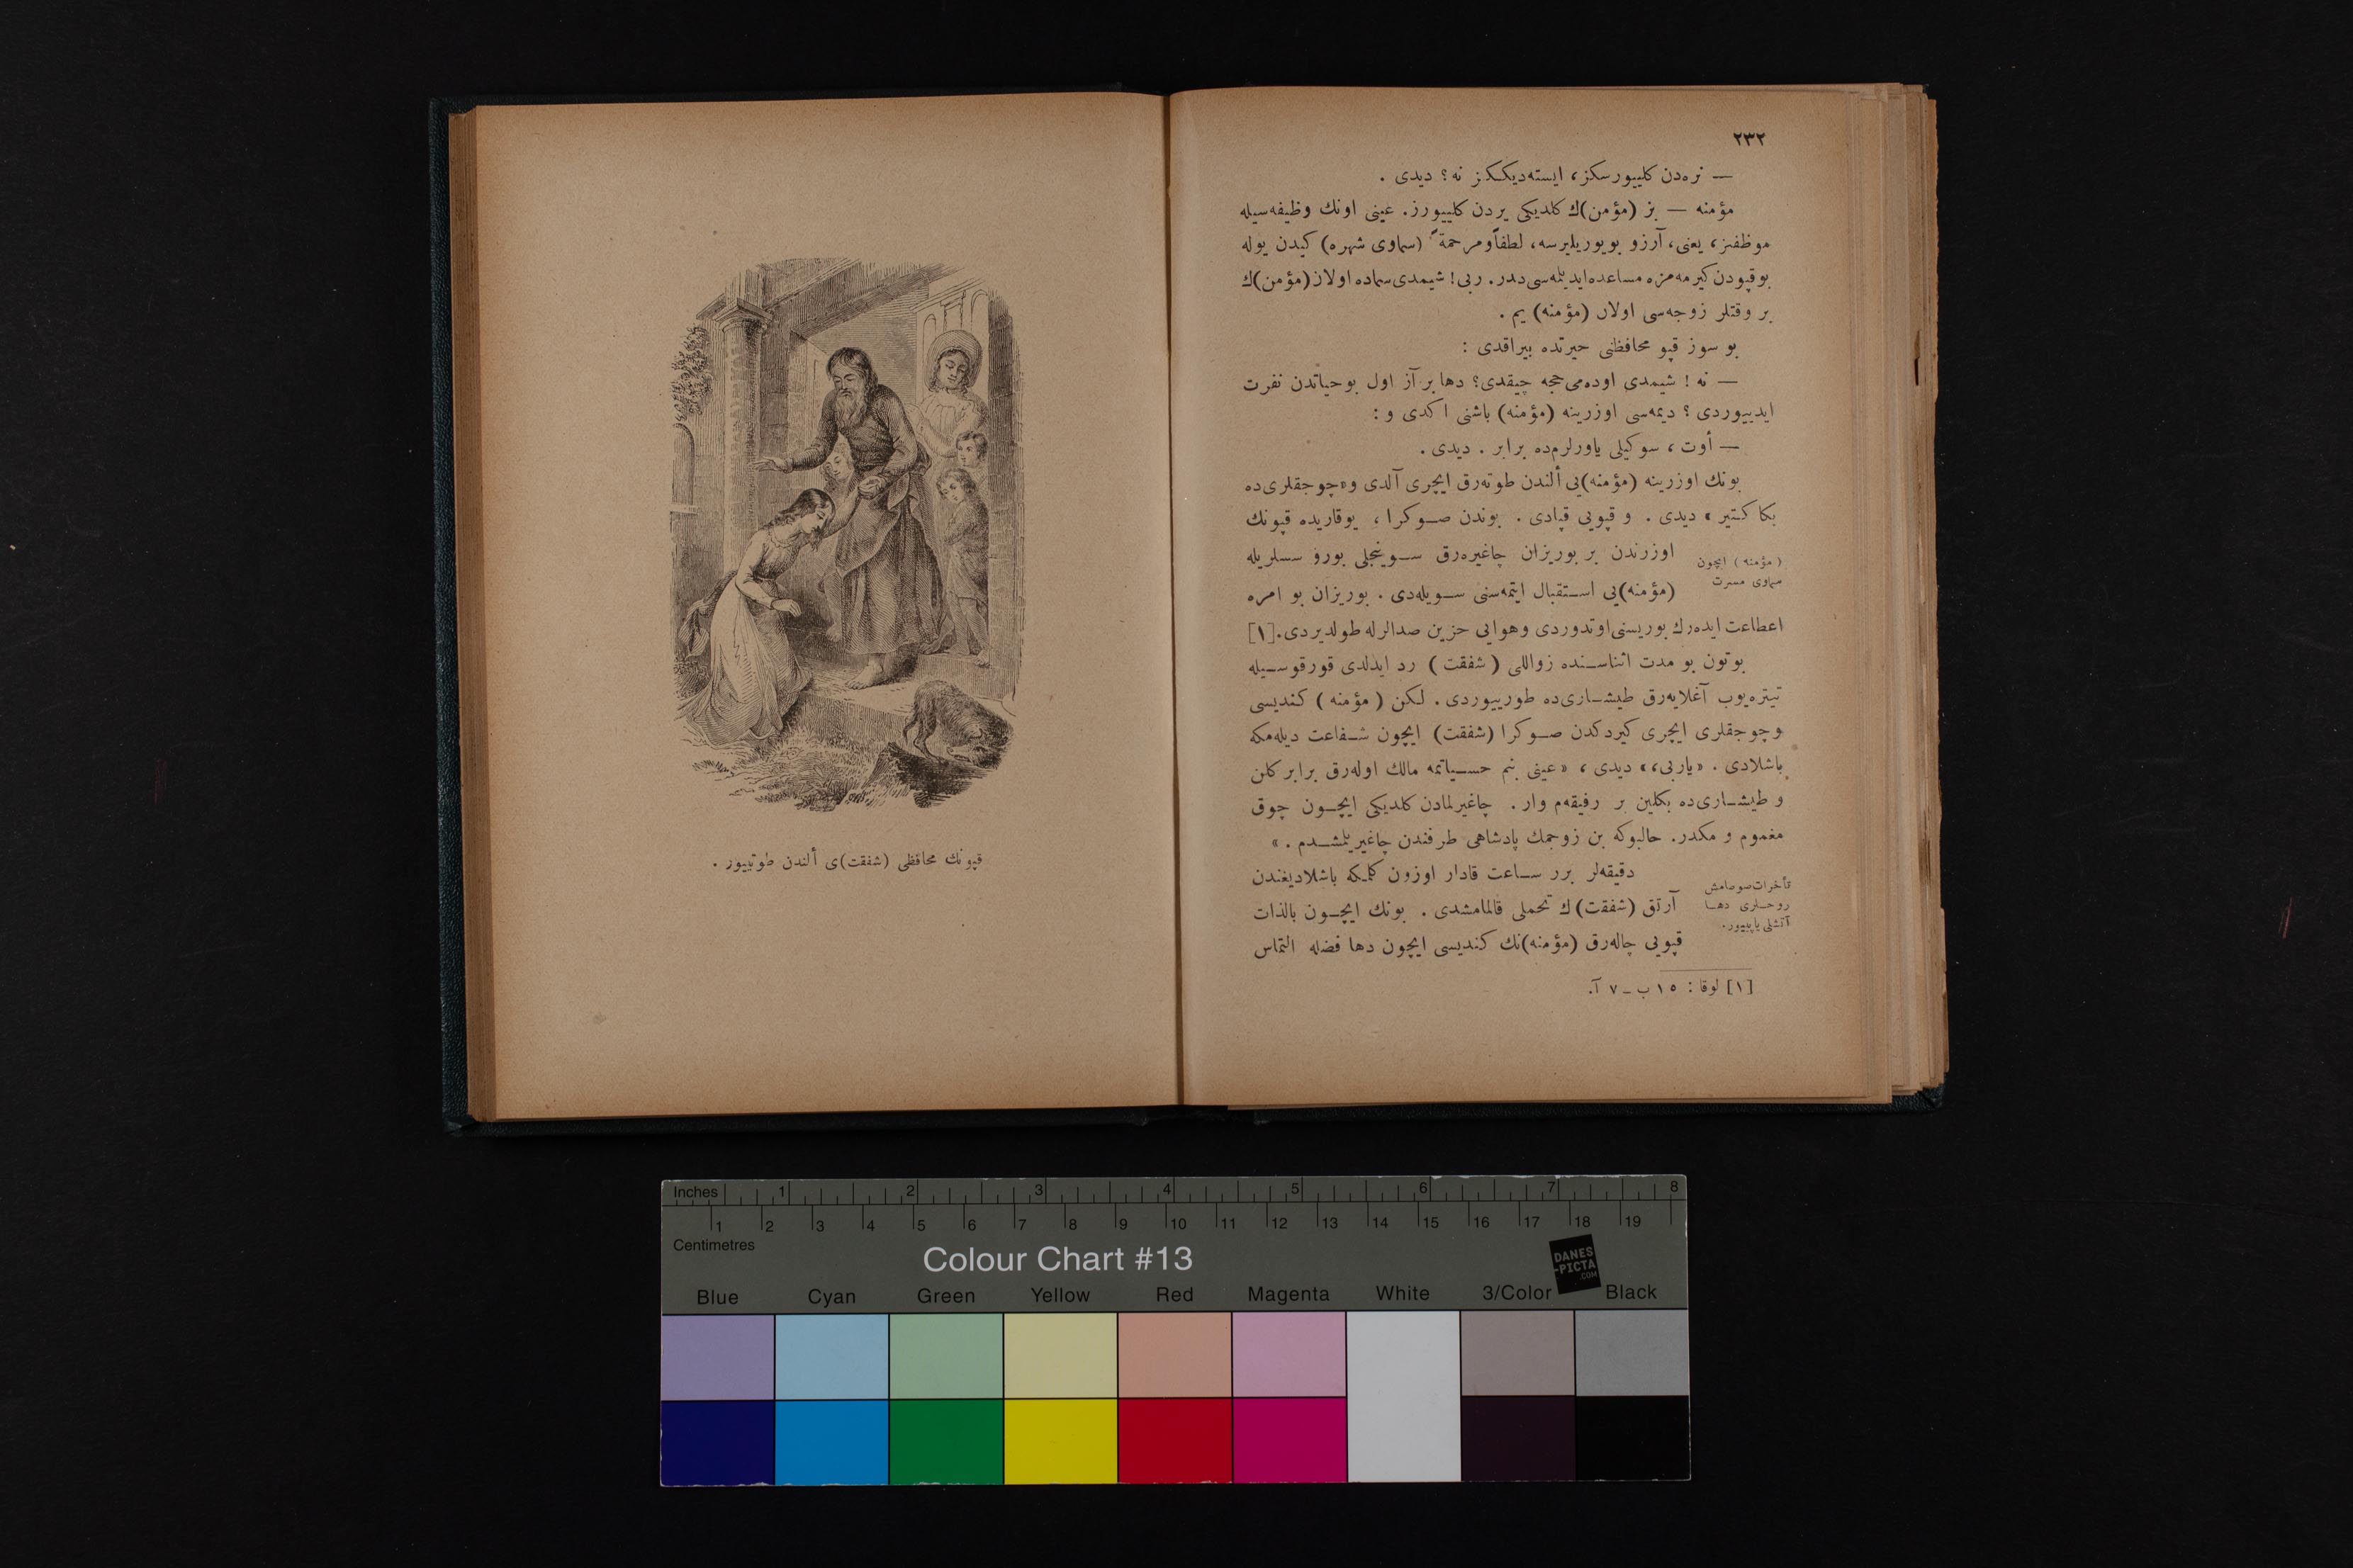 ٢٣٢
— نره‌دن كلييورسكز، ايسته‌ديككز نه؟ ديدى .
مؤمنه — بز (مؤمن)ك كلديكى يردن كلييورز. عينى اونك وظيفه‌سيله
موظفز، يعنى، آرزو بويوريليرسه، لطفاً ومرحمةً (سماوى شهره) كيدن يوله
بو قپودن كيرمه‌مزه مساعده ايديلمه‌سى‌در. ربى! شيمدى سماده اولان (مؤمن)ك
بر وقتلر زوجه‌سى اولان (مؤمنه) يم .
بو سوز قپو محافظنى حيرتده بيراقدى :
— نه ! شيمدى اوده‌مى حجه چيقدى؟ دها بر آز اول بو حياتدن نفرت
ايدييوردى ؟ ديمه‌سى اوزرينه (مؤمنه) باشنى اكدى و :
— أوت ، سوكيلى ياورلرم‌ده برابر . ديدى .
بونك اوزرينه (مؤمنه)يى ألندن طوته‌رق ايچرى آلدى و «چوجقلرى‌ده
بكا كتير » ديدى . و قپويى قپادى . بوندن صوكرا ، يوقاريده قپونك
اوزرندن بر بوريزان چاغيره‌رق سوينجلى بورو سسلريله
(مؤمنه)يى استقبال ايتمه‌سنى سويله‌دى . بوريزان بو امره
اعطاعت ايده‌رك بوريسنى اوتدوردى وهوايى حزين صدالرله طولديردى.[١]
(مؤمنه) ايچون
سماوى مسرت
بوتون بو مدت اثناسنده زواللى (شفقت) رد ايدلدى قورقوسيله
تيتره‌يوب آغلايه‌رق طيشارى‌ده طورييوردى . لكن (مؤمنه) كنديسى
و چوجقلرى ايچرى كيردكدن صوكرا (شفقت) ايچون شفاعت ديله‌مكه
باشلادى . «ياربى،» ديدى ، «عينى بنم حسياتمه مالك اوله‌رق برابر كلن
و طيشارى‌ده بكلين بر رفيقه‌م وار . چاغيرلمادن كلديكى ايچون چوق
مغموم و مكدر. حالبوكه بن زوجمك پادشاهى طرفندن چاغيريلمشدم . »
دقيقه‌لر برر ساعت قادار اوزون كلمكه باشلاديغندن
آرتق (شفقت)ك تحملى قالمامشدى . بونك ايچون بالذات
قپويى چاله‌رق (مؤمنه)نك كنديسى ايچون دها فضله التماس
تأخرات صوصامش
روحلرى دها
آتشلى ياپييور.
[١] لوقا : ١٥ ب ـ ٧ آ.
قپونك محافظى (شفقت)ى ألندن طوتييور .
Inches 1 2 3 4 5 6 7 8
1 2 3 4 5 6 7 8 9 10 11 12 13 14 15 16 17 18 19
Centimetres
Colour Chart #13
DANES
-PICTA
.COM
Blue Cyan Green Yellow Red Magenta White 3/Color Black